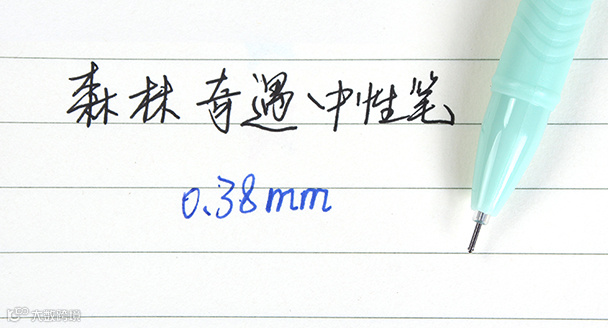 森林奇遇中性笔
0.38mm
大数跨境